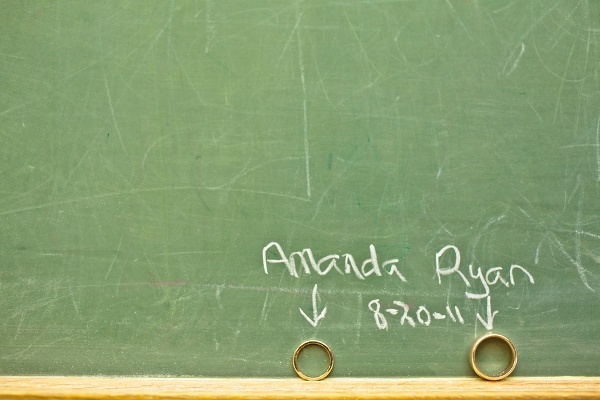 Amanda Ryan
8-20-11